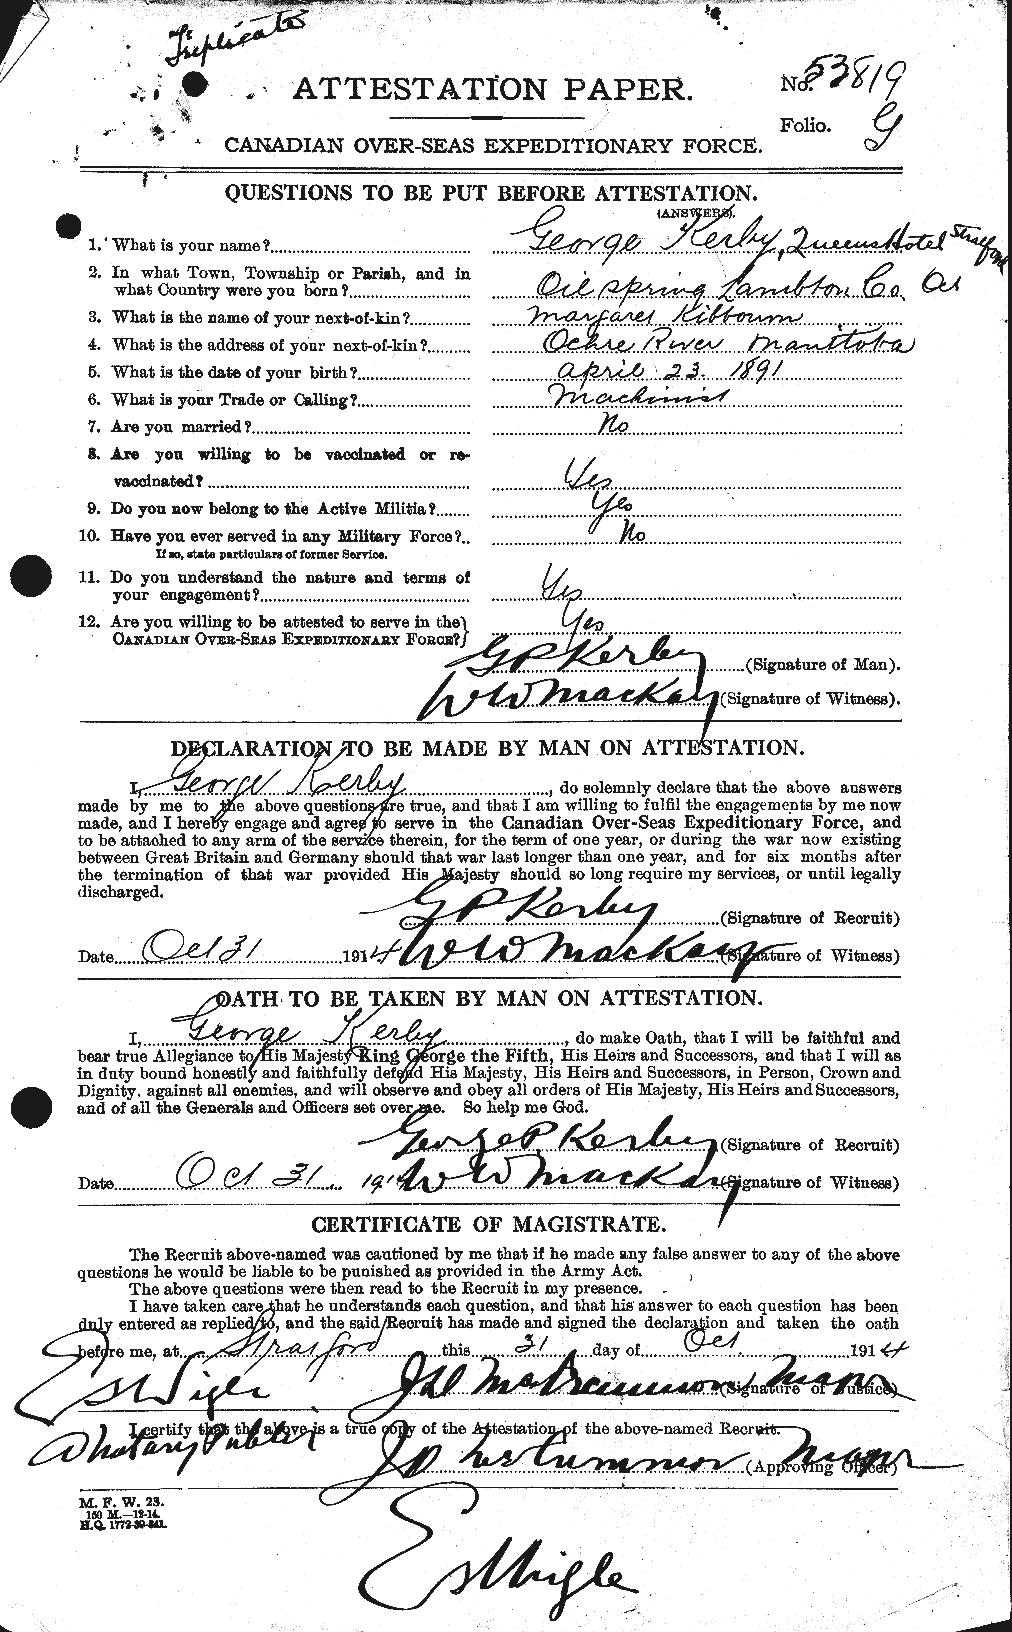 Triplicate
ATTESTATION PAPER.
No. 53819
Folio. G
CANADIAN OVER-SEAS EXPEDITIONARY FORCE.
QUESTIONS TO BE PUT BEFORE ATTESTATION.
(ANSWERS).
1. What is your name? George Kerby, Queens Hotel Stratford
2. In what Town, Township or Parish, and in
what Country were you born? Oil spring Lambton Co. Ont
3. What is the name of your next-of-kin? Margaret Kibbourn
4. What is the address of your next-of-kin? Ochre River Manitoba
5. What is the date of your birth? April 23. 1891
6. What is your Trade or Calling? Machinist
7. Are you married? No
8. Are you willing to be vaccinated or re-
vaccinated? Yes
9. Do you now belong to the Active Militia? Yes
10. Have you ever served in any Military Force? No
If so, state particulars of former Service.
11. Do you understand the nature and terms of
your engagement? Yes
12. Are you willing to be attested to serve in the
CANADIAN OVER-SEAS EXPEDITIONARY FORCE? Yes
G P Kerby (Signature of Man).
W W MacKay (Signature of Witness).
DECLARATION TO BE MADE BY MAN ON ATTESTATION.
I, George Kerby, do solemnly declare that the above answers
made by me to the above questions are true, and that I am willing to fulfil the engagements by me now
made, and I hereby engage and agree to serve in the Canadian Over-Seas Expeditionary Force, and
to be attached to any arm of the service therein, for the term of one year, or during the war now existing
between Great Britain and Germany should that war last longer than one year, and for six months after
the termination of that war provided His Majesty should so long require my services, or until legally
discharged.
G P Kerby (Signature of Recruit)
Date Oct 31 1914 W W MacKay (Signature of Witness)
OATH TO BE TAKEN BY MAN ON ATTESTATION.
I, George Kerby, do make Oath, that I will be faithful and
bear true Allegiance to His Majesty King George the Fifth, His Heirs and Successors, and that I will as
in duty bound honestly and faithfully defend His Majesty, His Heirs and Successors, in Person, Crown and
Dignity, against all enemies, and will observe and obey all orders of His Majesty, His Heirs and Successors,
and of all the Generals and Officers set over me. So help me God.
George P Kerby (Signature of Recruit)
Date Oct 31. 1914 W W MacKay (Signature of Witness)
CERTIFICATE OF MAGISTRATE.
The Recruit above-named was cautioned by me that if he made any false answer to any of the above
questions he would be liable to be punished as provided in the Army Act.
The above questions were then read to the Recruit in my presence.
I have taken care that he understands each question, and that his answer to each question has been
duly entered as replied to, and the said Recruit has made and signed the declaration and taken the oath
before me, at Stratford this 31 day of Oct. 1914
E S Wigle J D Mayor (Signature of Justice)
I certify that the above is a true copy of the Attestation of the above-named Recruit.
A Notary Public J D Mayor (Approving Officer)
M. F. W. 23.
150 M.—12-14.
H.Q. 1772-39-841.
E S Wigle